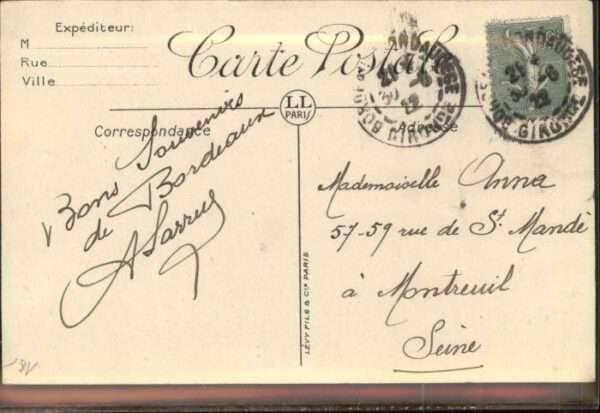 Expéditeur:
M
Rue
Ville
Carte Postale
LL
PARIS
Correspondance
Adresse
Bons Souvenirs
de Bordeaux
ASarrus
Mademoiselle Anna
57-59 rue de St Mandé
à Montreuil
Seine
LÉVY FILS & Cie PARIS
BORDEAUX GIRONDE
22
BORDEAUX GIRONDE
22